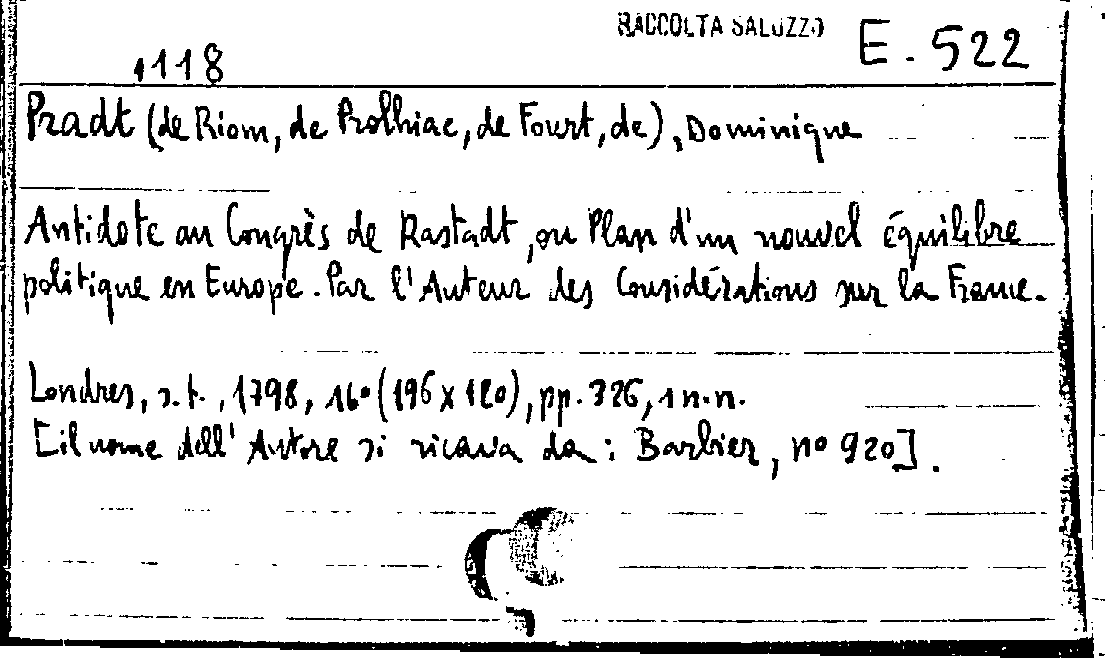 RACCOLTA SALUZZO E. 522
118
Pradt (de Riom, de Prolhiac, de Fourt, de), Dominique
Antidote au Congrès de Rastadt, ou Plan d'un nouvel équilibre
politique en Europe. Par l'Auteur des Considérations sur la France.
Londres, s.t., 1798, 16° (196 x 120), pp. 326, 1 n.n.
[il nome dell'Autore si ricava da: Barbier, n° 920].